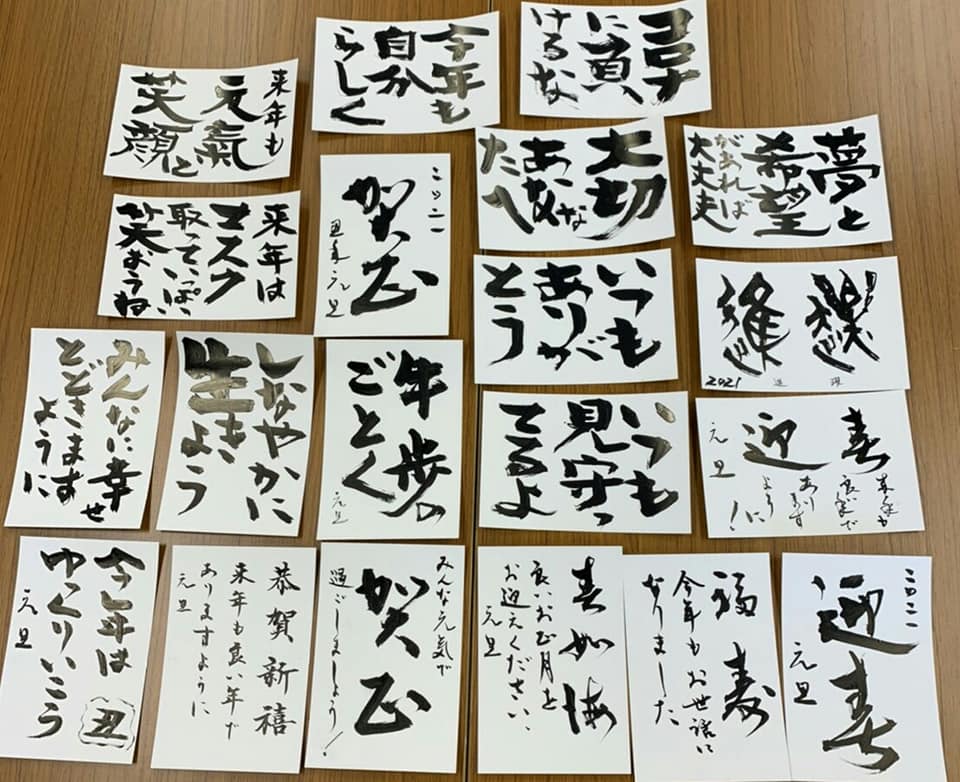 今年も
自分
らしく
コロナ
に負
けるな
来年も
元氣と
笑顔
大切な
あな
たへ
夢と
希望
があれば
大丈夫
来年は
マスク
取っていっぱい
笑おうね
賀正
丑年元旦
いつも
ありが
とう
2021
進
躍
みんなに幸せ
とどきます
ように
しなやかに
生きよう
牛歩の
ごとく
元旦
いつも
見守っ
てるよ
春
迎
来年も
良い年で
あります
ように!
元旦
今年は
ゆっくりいこう
元旦
丑
恭賀新禧
来年も良い年で
ありますように
元旦
みんな元気で
賀正
過ごしましょう!
春如海
良いお正月を
お迎えください
元旦
福寿
今年もお世話に
なりました
迎春
元旦